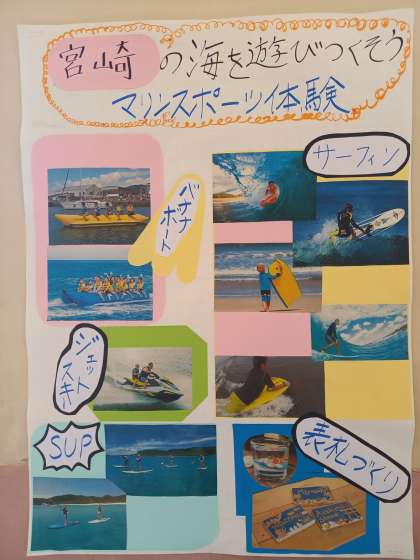 宮崎の海を遊びつくそう
マリンスポーツ体験
バナナ
ボート
サーフィン
ジェット
スキー
SUP
表札づくり